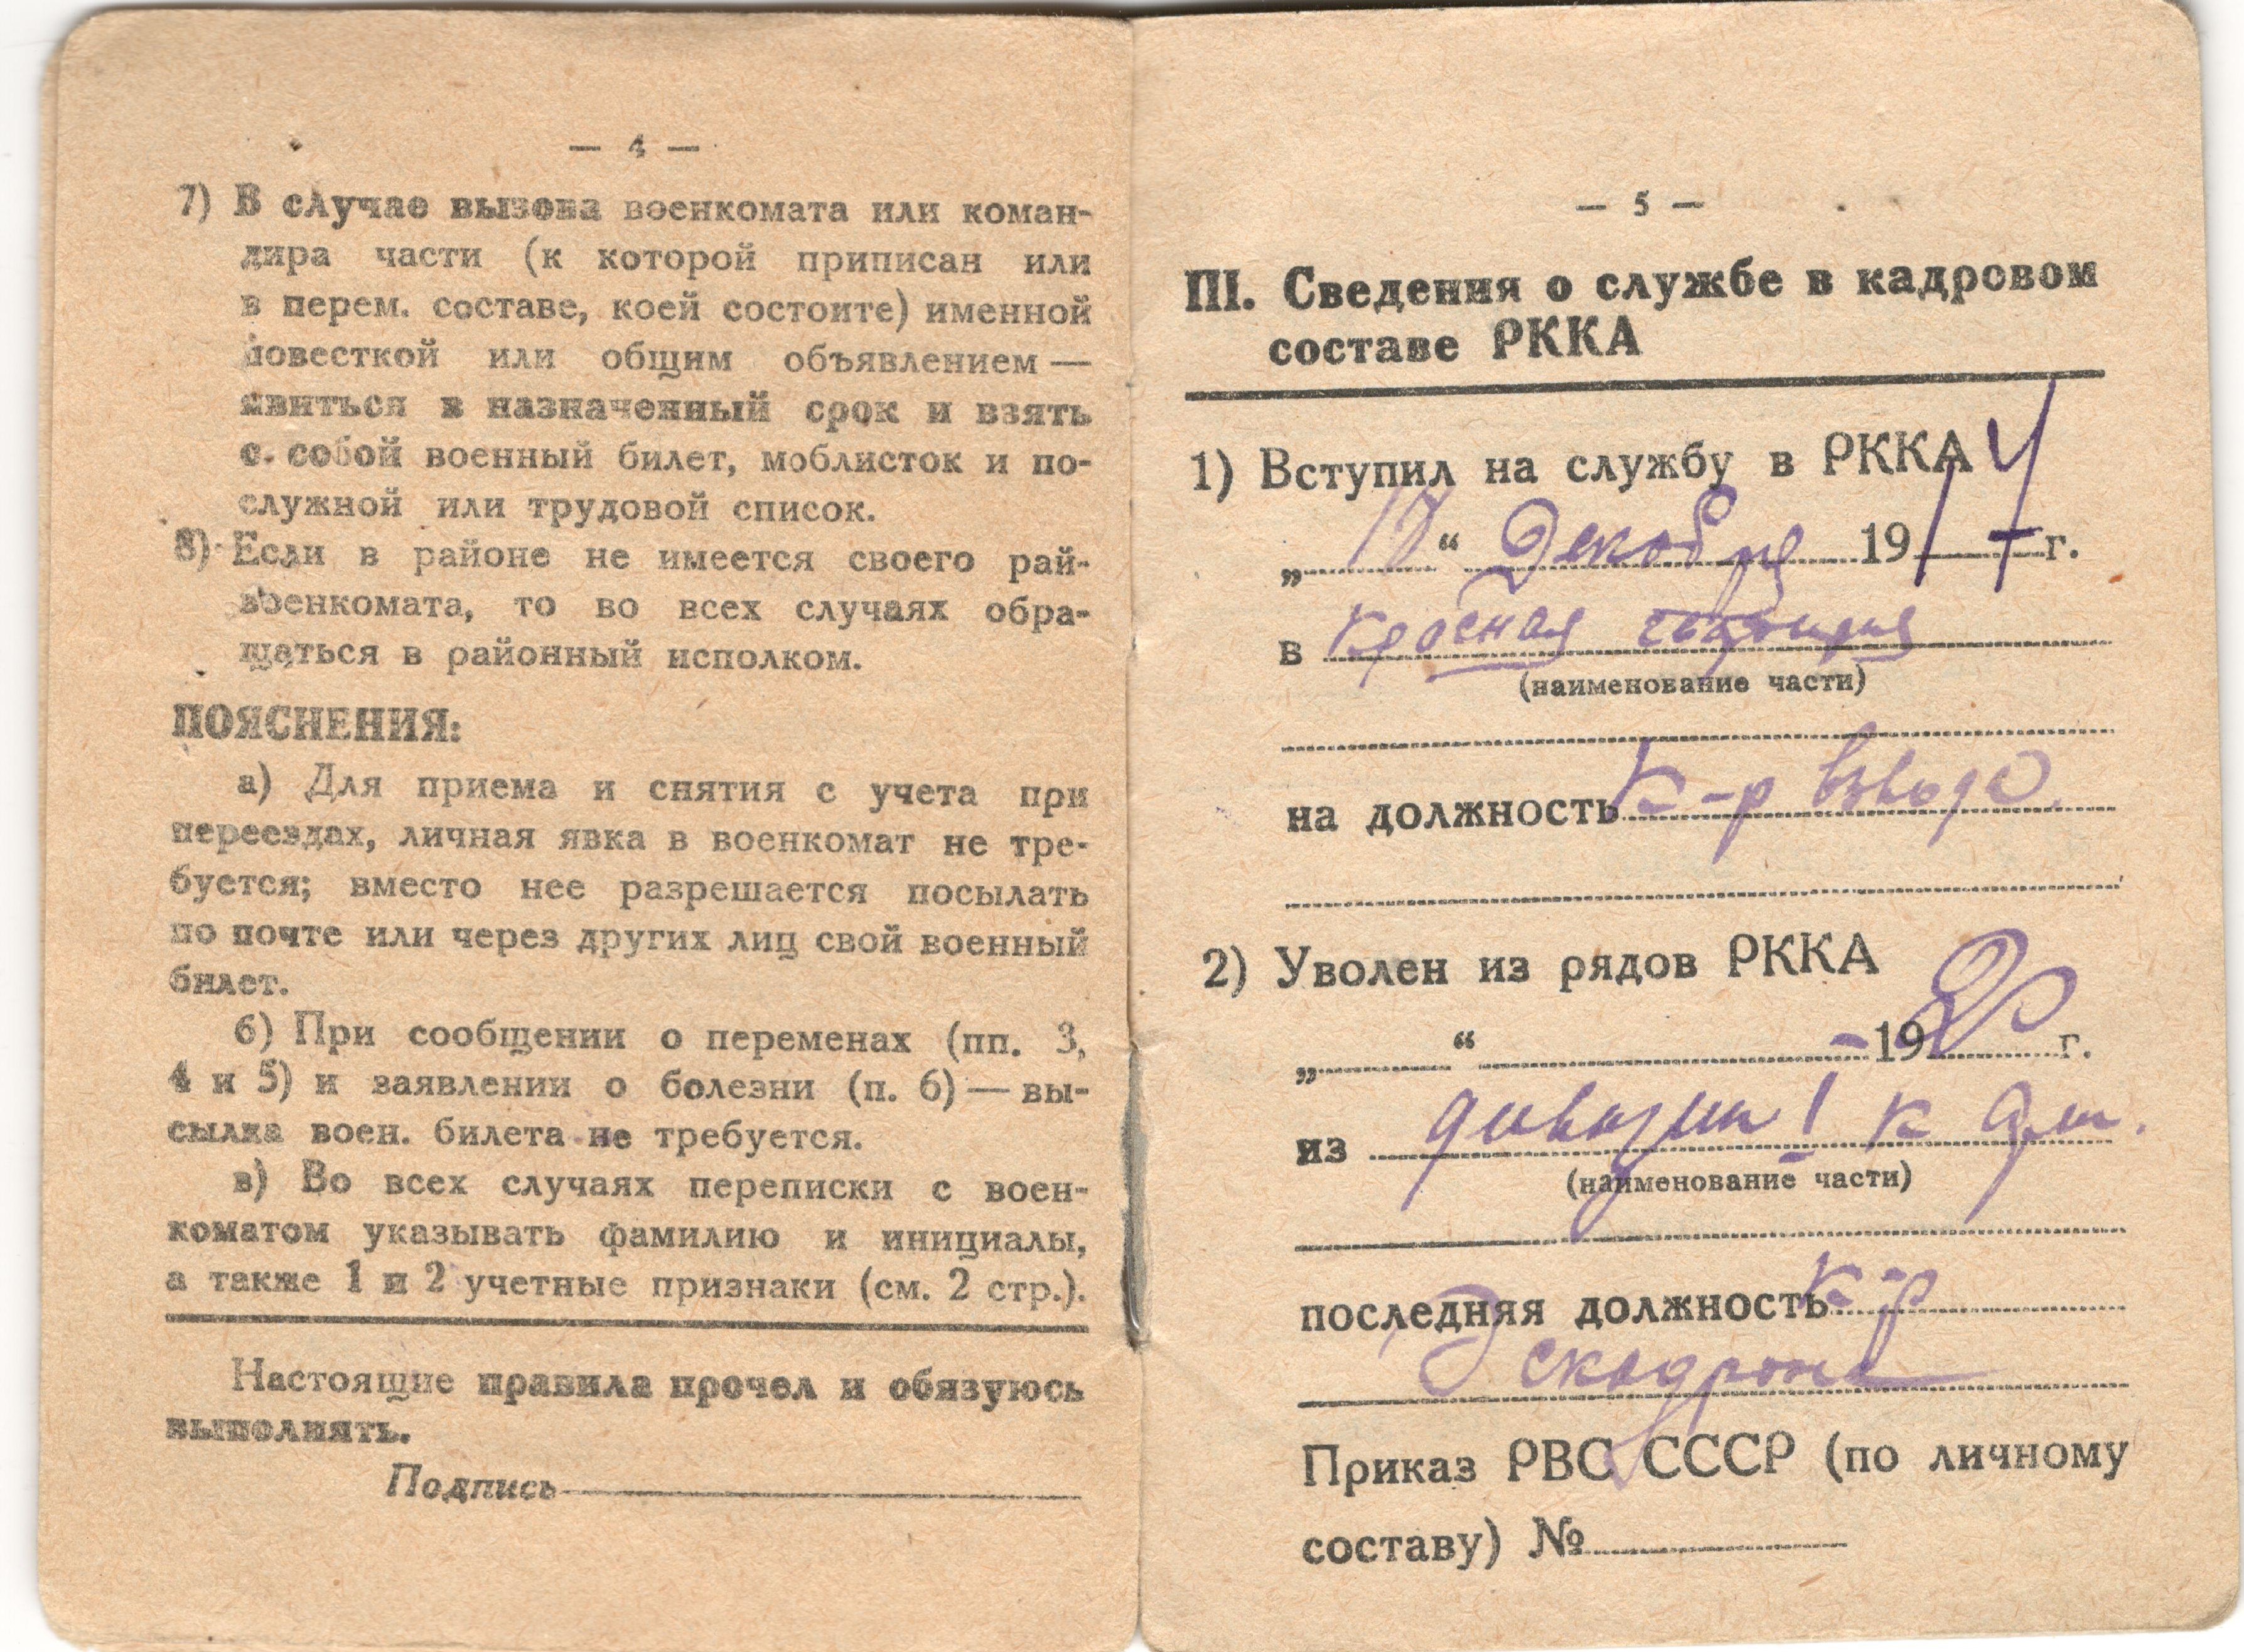 — 4 —
7) В случае вызова военкомата или коман-
дира части (к которой приписан или
в перем. составе, коей состоите) именной
повесткой или общим объявлением —
явиться в назначенный срок и взять
с собой военный билет, моблисток и по-
служной или трудовой список.
8) Если в районе не имеется своего рай-
военкомата, то во всех случаях обра-
щаться в районный исполком.
ПОЯСНЕНИЯ:
а) Для приема и снятия с учета при
переездах, личная явка в военкомат не тре-
буется; вместо нее разрешается посылать
по почте или через других лиц свой военный
билет.
б) При сообщении о переменах (пп. 3,
4 и 5) и заявлении о болезни (п. 6) — вы-
сылка воен. билета не требуется.
в) Во всех случаях переписки с воен-
коматом указывать фамилию и инициалы,
а также 1 и 2 учетные признаки (см. 2 стр.).
Настоящие правила прочел и обязуюсь
выполнять.
Подпись
— 5 —
III. Сведения о службе в кадровом
составе РККА
1) Вступил на службу в РККА
„ “ Декабря 1917 г.
в Красная гвардия
(наименование части)
на должность К-р взвода
2) Уволен из рядов РККА
„ “ - 19 г.
из дивизии 1 к
(наименование части)
последняя должность К-р
Эскадрона
Приказ РВС СССР (по личному
составу) №